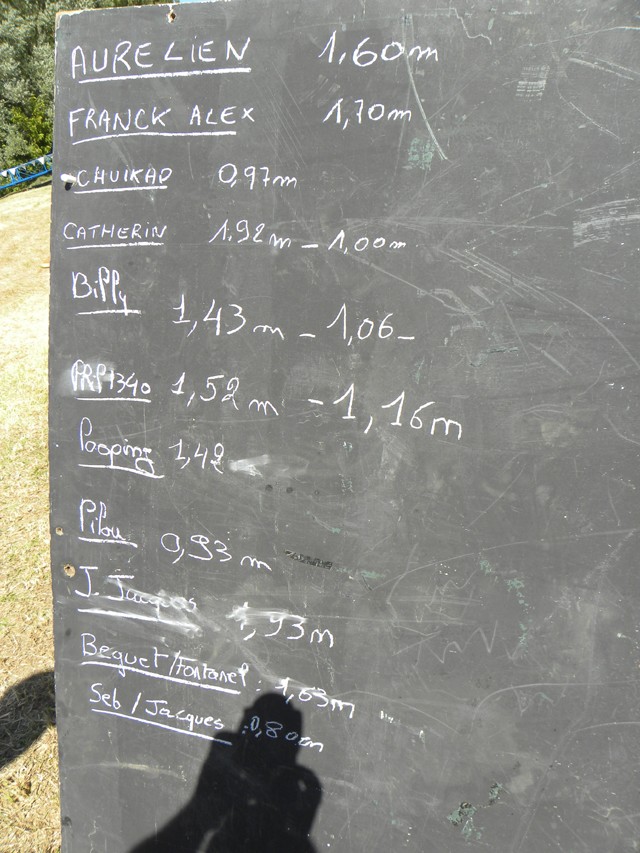 AURELIEN 1,60m
FRANCK ALEX 1,70m
CHUIKAD 0,97m
CATHERIN 1.92m - 1,00m
Billy 1,43 m - 1,06-
PRP1340 1,52 m - 1,16m
Pooping 1,42
Pilou 0,93 m
J. Jacques ,93m
Beguet/Fontanel : 1,63m
Seb / Jacques : 0,80m